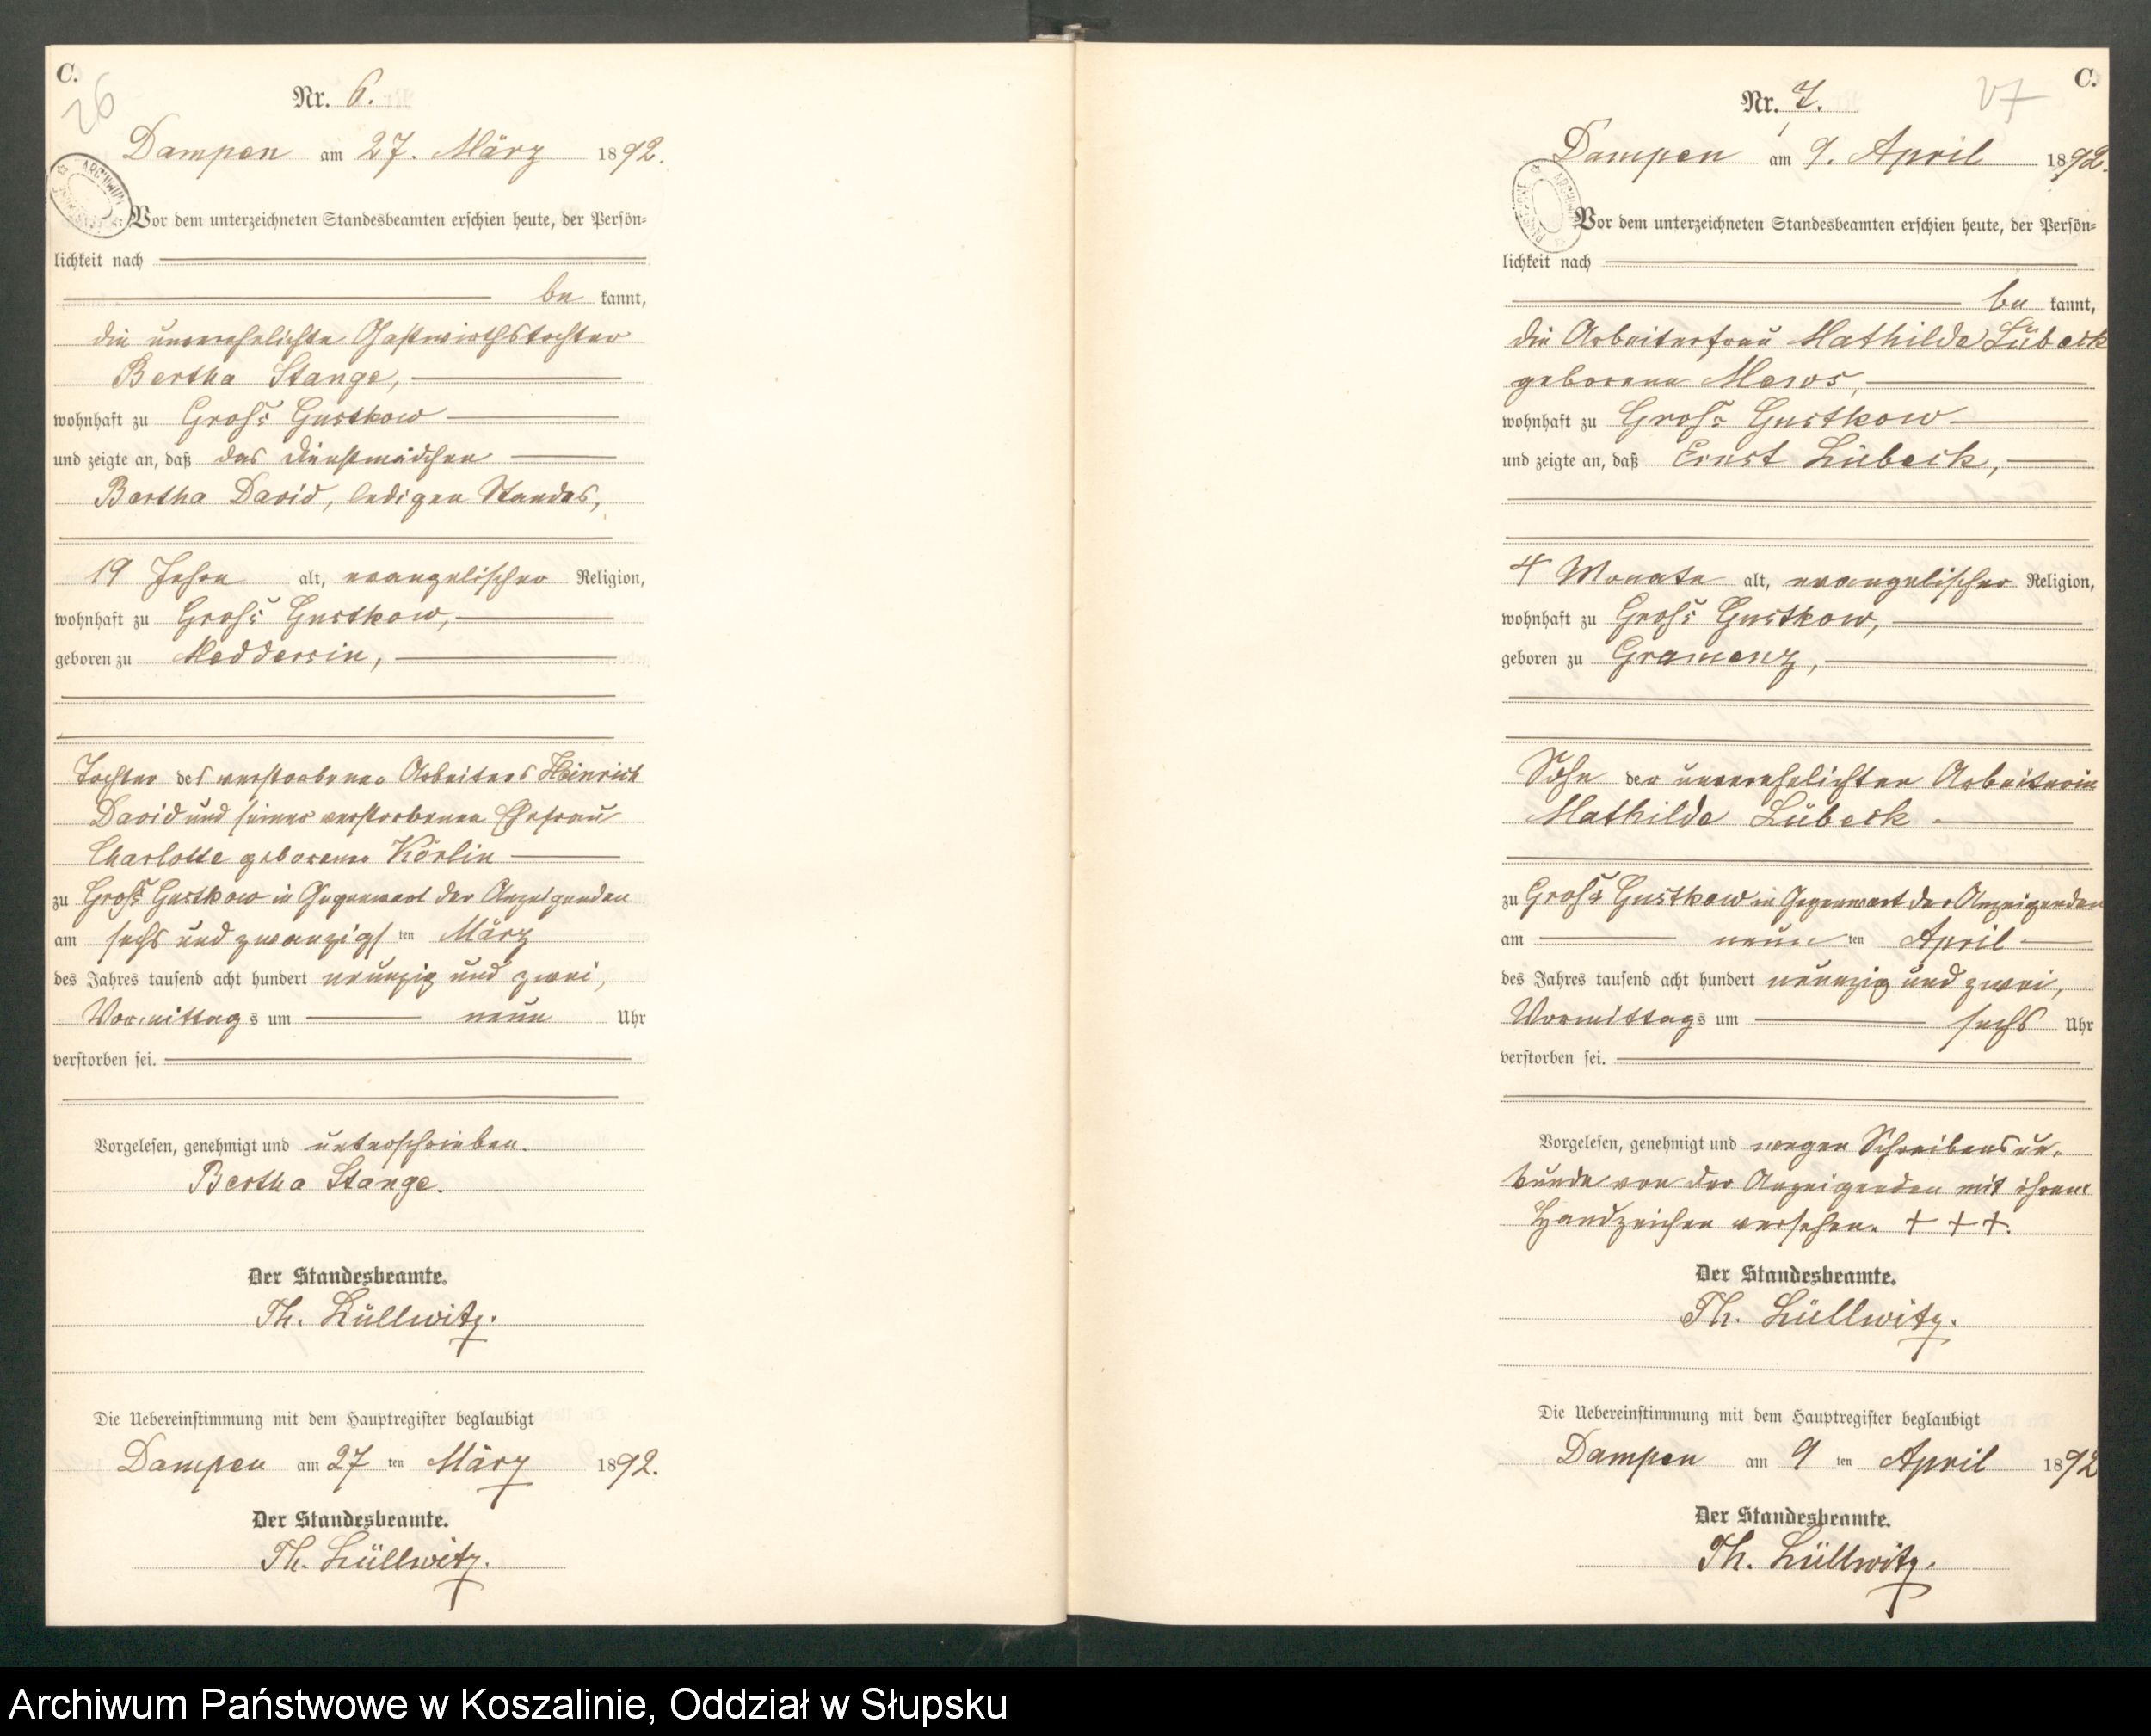 C.
26
Nr. 6.
Dampen am 27. März 1892.
ARCHIWUM
Vor dem unterzeichneten Standesbeamten erschien heute, der Persön=
lichkeit nach
be kannt,
die unverehelichte Gastwirthstochter
Bertha Stange,
wohnhaft zu Gross Gustkow
und zeigte an, daß das Dienstmädchen
Bertha David, ledigen Standes,
19 Jahre alt, evangelischer Religion,
wohnhaft zu Gross Gustkow,
geboren zu Meddersin,
Tochter des verstorbenen Arbeiters Heinrich
David und seiner verstorbenen Ehefrau
Charlotte geborene Körlin
zu Gross Gustkow in Gegenwart der Anzeigenden
am sechs und zwanzigs ten März
des Jahres tausend acht hundert neunzig und zwei,
Vormittag s um neun Uhr
verstorben sei.
Vorgelesen, genehmigt und unterschrieben.
Bertha Stange.
Der Standesbeamte.
Th. Lüllwitz.
Die Uebereinstimmung mit dem Hauptregister beglaubigt
Dampen am 27 ten März 1892.
Der Standesbeamte.
Th. Lüllwitz.
C.
27
Nr. 7.
Dampen am 9. April 1892.
ARCHIWUM
Vor dem unterzeichneten Standesbeamten erschien heute, der Persön=
lichkeit nach
be kannt,
die Arbeiterfrau Mathilde Lübeck
geborene Mews,
wohnhaft zu Gross Gustkow
und zeigte an, daß Ernst Lübeck,
4 Monate alt, evangelischer Religion,
wohnhaft zu Gross Gustkow,
geboren zu Gramenz,
Sohn der unverehelichten Arbeiterin
Mathilde Lübeck
zu Gross Gustkow in Gegenwart der Anzeigenden
am neun ten April
des Jahres tausend acht hundert neunzig und zwei,
Vormittag s um sechs Uhr
verstorben sei.
Vorgelesen, genehmigt und wegen Schreibensun-
kunde von der Anzeigenden mit ihrem
Handzeichen versehen. + + +.
Der Standesbeamte.
Th. Lüllwitz.
Die Uebereinstimmung mit dem Hauptregister beglaubigt
Dampen am 9 ten April 1892
Der Standesbeamte.
Th. Lüllwitz.
Archiwum Państwowe w Koszalinie, Oddział w Słupsku